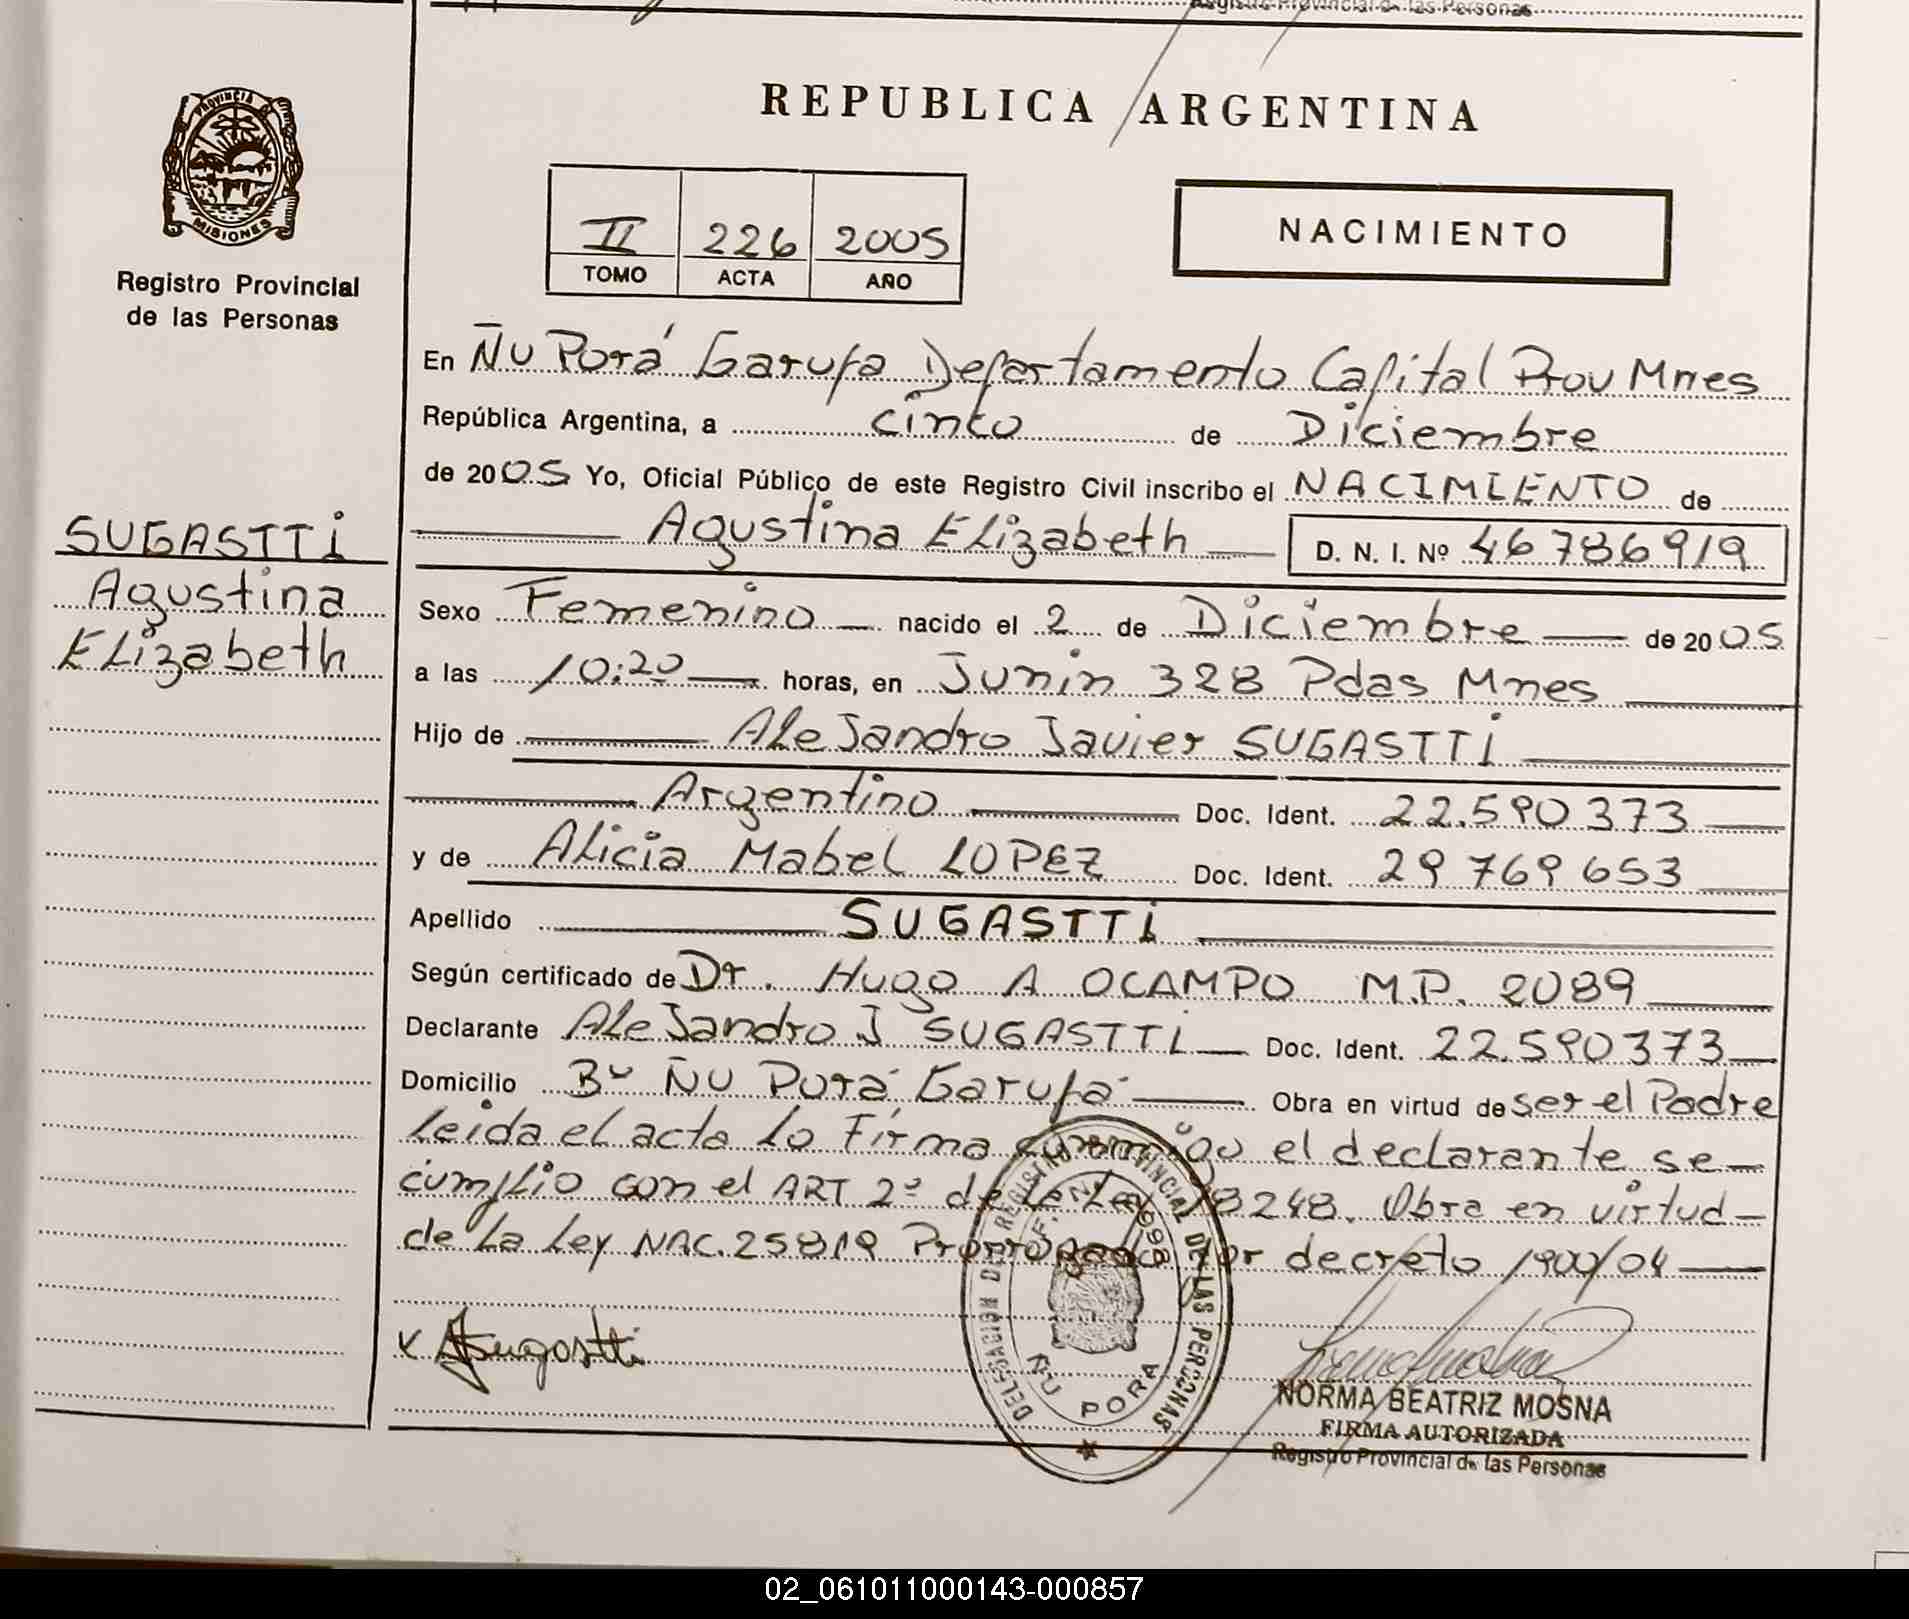 Registro Provincial de las Personas
REPUBLICA ARGENTINA
PROVINCIA DE
MISIONES
Registro Provincial
de las Personas
II 226 2005
TOMO ACTA AÑO
NACIMIENTO
En Ñu Porá Garupa Departamento Capital Prov Mnes
República Argentina, a cinco de Diciembre
de 2005 Yo, Oficial Público de este Registro Civil inscribo el NACIMIENTO de
Agustina Elizabeth D. N. I. Nº 46786919
SUGASTTI
Agustina
Elizabeth
Sexo Femenino nacido el 2 de Diciembre de 2005
a las 10:20 horas, en Junin 328 Pdas Mnes
Hijo de Alejandro Javier SUGASTTI
Argentino Doc. Ident. 22.590373
y de Alicia Mabel LOPEZ Doc. Ident. 29 769 653
Apellido SUGASTTI
Según certificado de Dr. Hugo A OCAMPO M.P. 2089
Declarante Alejandro J SUGASTTI Doc. Ident. 22.590373
Domicilio Bº Ñu Porá Garupá Obra en virtud de ser el Padre
leida el acta la Firma conmigo el declarante se
cumplio con el ART 2º de la Ley 18248. Obra en virtud
de la Ley NAC. 25819 Prorrogada por decreto 1900/04
DELEGACION DE REGISTRO PROVINCIAL DE LAS PERSONAS
ÑU PORA
Sugastti
NORMA BEATRIZ MOSNA
FIRMA AUTORIZADA
Registro Provincial de las Personas
02_061011000143-000857